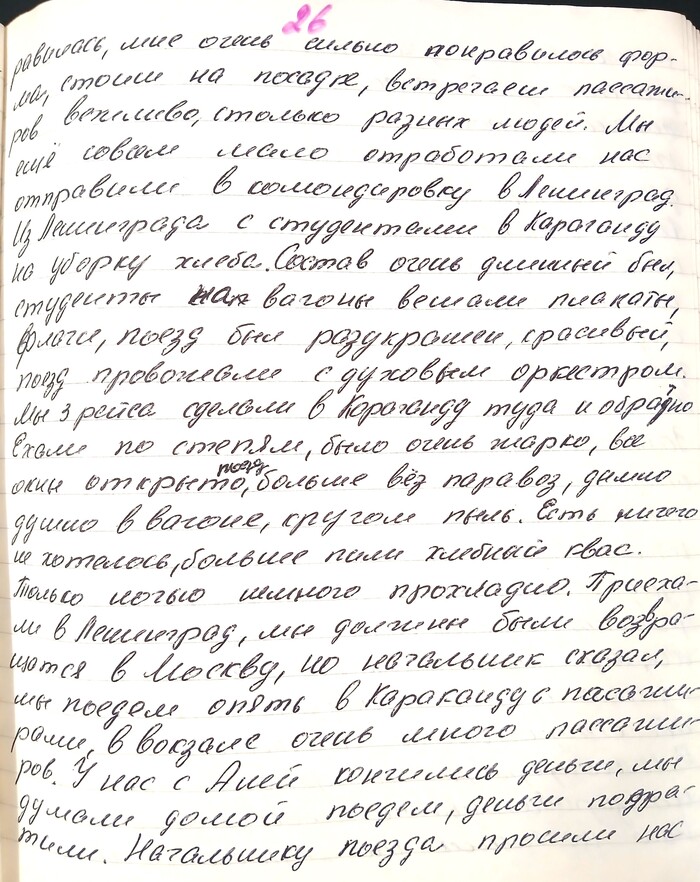 26
равилась, мне очень сильно понравилось фор-
ма, стоиш на посадке, встречаеш пассажи-
ров вежливо, столько разных людей. Мы
ещё совсем мало отработали нас
отправили в командировку в Ленинград.
Из Ленинграда с студентами в Караганду
на уборку хлеба. Состав очень длинный был,
студенты на вагоны вешали плакаты,
флаги, поезд был разукрашен, красивый,
поезд провожали с духовым оркестром.
Мы 3 рейса сделали в Караганду туда и обратно
Ехали по степям, было очень жарко, все
окны открыто, поезд больше вёз паравоз, дымно
душно в вагоне, кругом пыль. Есть ничего
не хотелось, больше пили хлебный квас.
Только ночью немного прохладно. Приеха-
ли в Ленинград, мы должны были возвра-
щатся в Москву, но начальник сказал,
мы поедем опять в Караканду с пасажи-
рами, в вокзале очень много пассажи-
ров. У нас с Аней кончились деньги, мы
думали домой поедем, деньги подра-
тили. Начальнику поезда просили нас